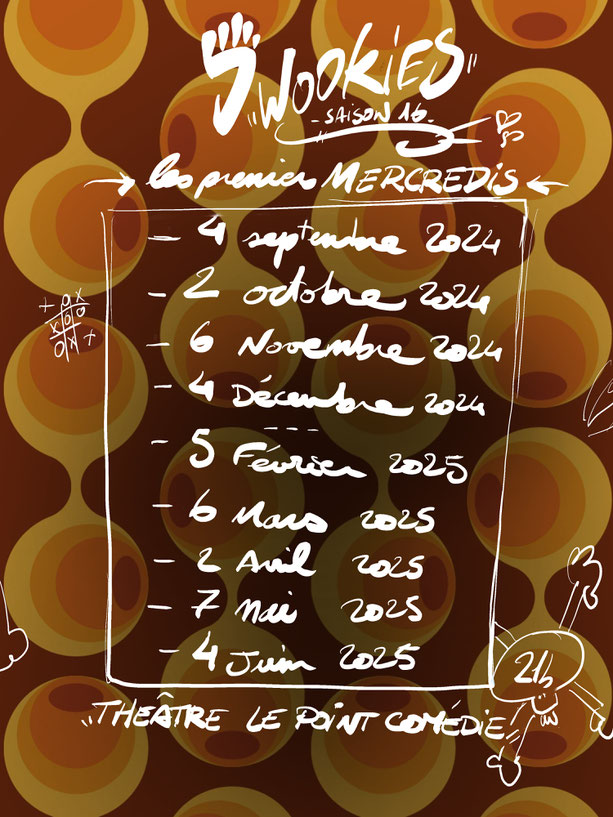 5 "WOOKIES"
- SAISON 16 -
→ les premiers MERCREDIS ←
- 4 septembre 2024
- 2 octobre 2024
- 6 Novembre 2024
- 4 Décembre 2024
- - -
- 5 Février 2025
- 6 Mars 2025
- 2 Avril 2025
- 7 Mai 2025
- 4 Juin 2025
"THEÂTRE LE POINT COMÉDIE"
21h